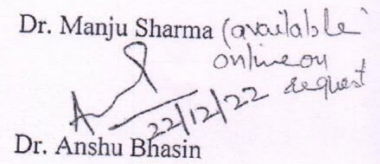 Dr. Manju Sharma (available
online on
request
22/12/22
Dr. Anshu Bhasin